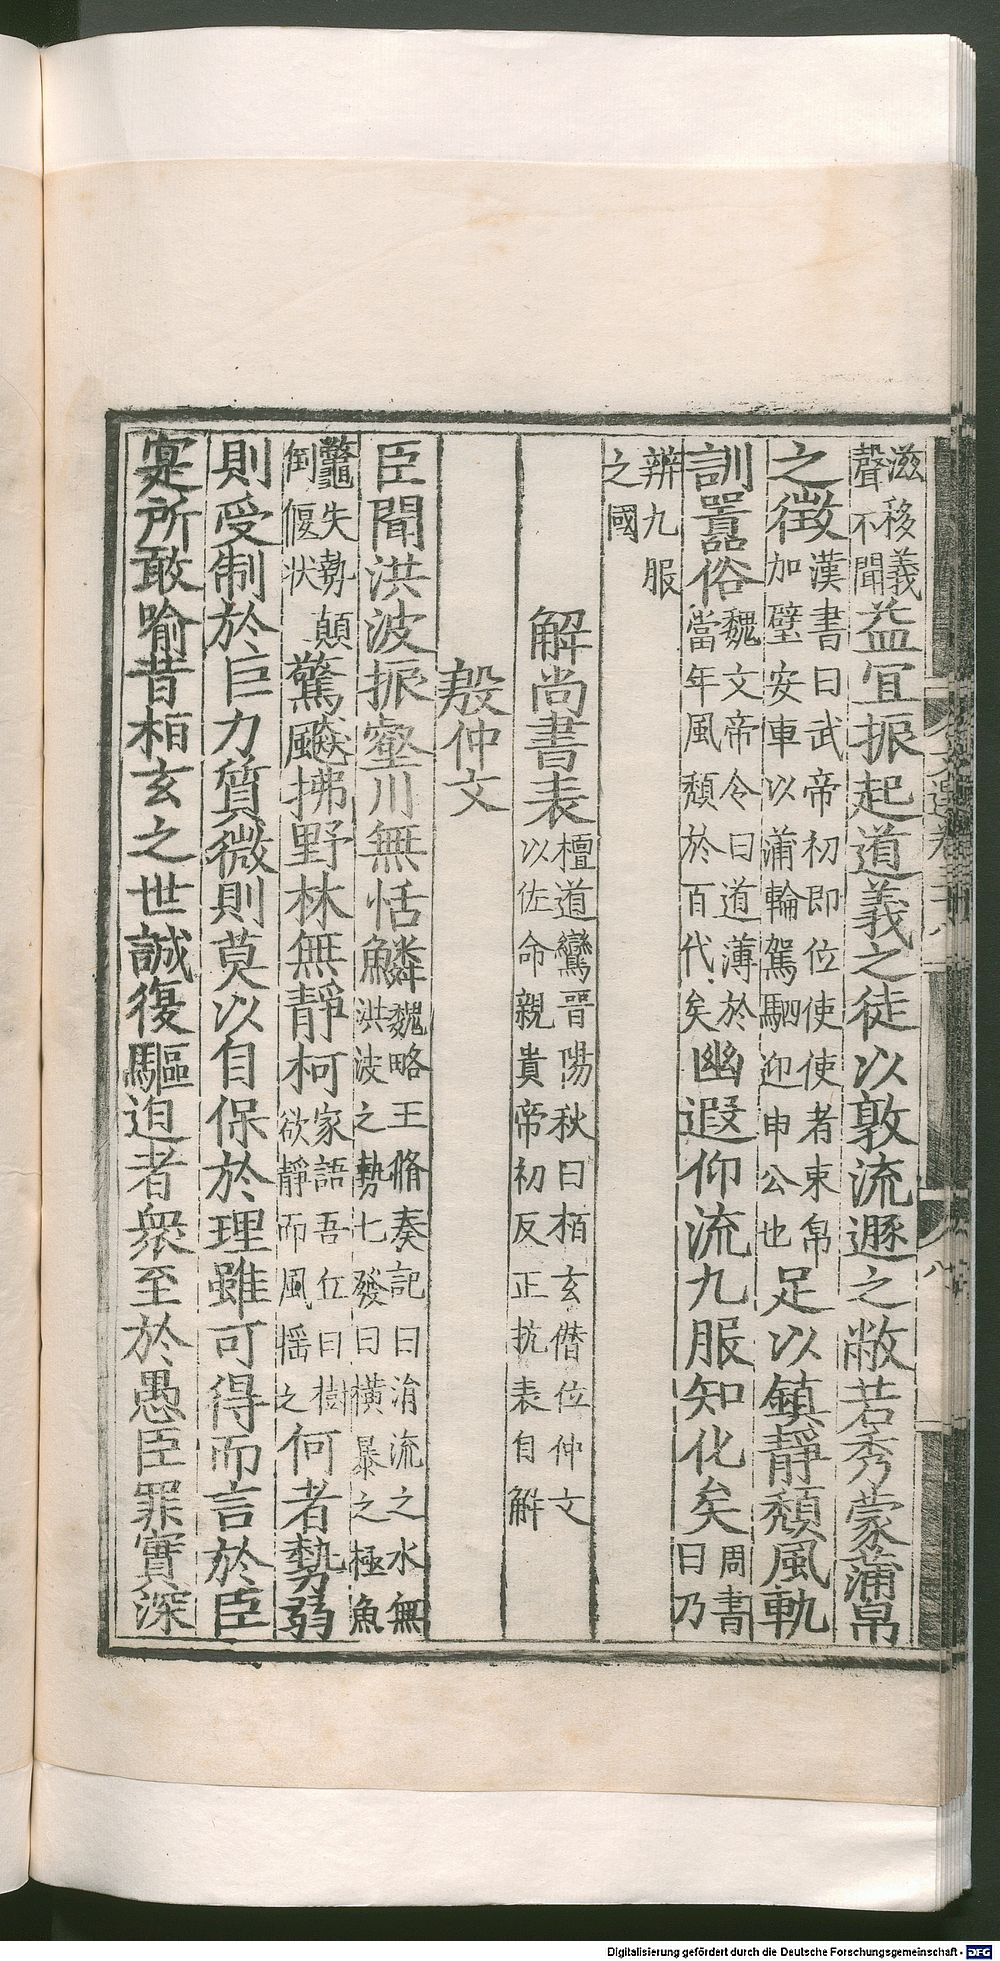 滋移義聲不聞益宜振起道義之徒以敦流遯之敝若秀蒙蒲帛
之徵漢書曰武帝初即位使使者束帛加璧安車以蒲輪駕駟迎申公也足以鎮靜頹風軌
訓囂俗魏文帝令曰道薄於當年風頹於百代矣幽遐仰流九服知化矣周書曰乃
辨九服之國
解尚書表檀道鸞晉陽秋曰桓玄僭位仲文以佐命親貴帝初反正抗表自解
殷仲文
臣聞洪波振壑川無恬鱗魏略王脩奏記曰淯流之水無洪波之勢七發曰橫暴之極魚
鼈失勢顛倒偃状驚飈拂野林無靜柯家語吾丘曰樹欲靜而風搖之何者勢弱
則受制於巨力質微則莫以自保於理雖可得而言於臣
寔所敢喻昔桓玄之世誠復驅迫者衆至於愚臣罪實深
八
Digitalisierung gefördert durch die Deutsche Forschungsgemeinschaft - DFG